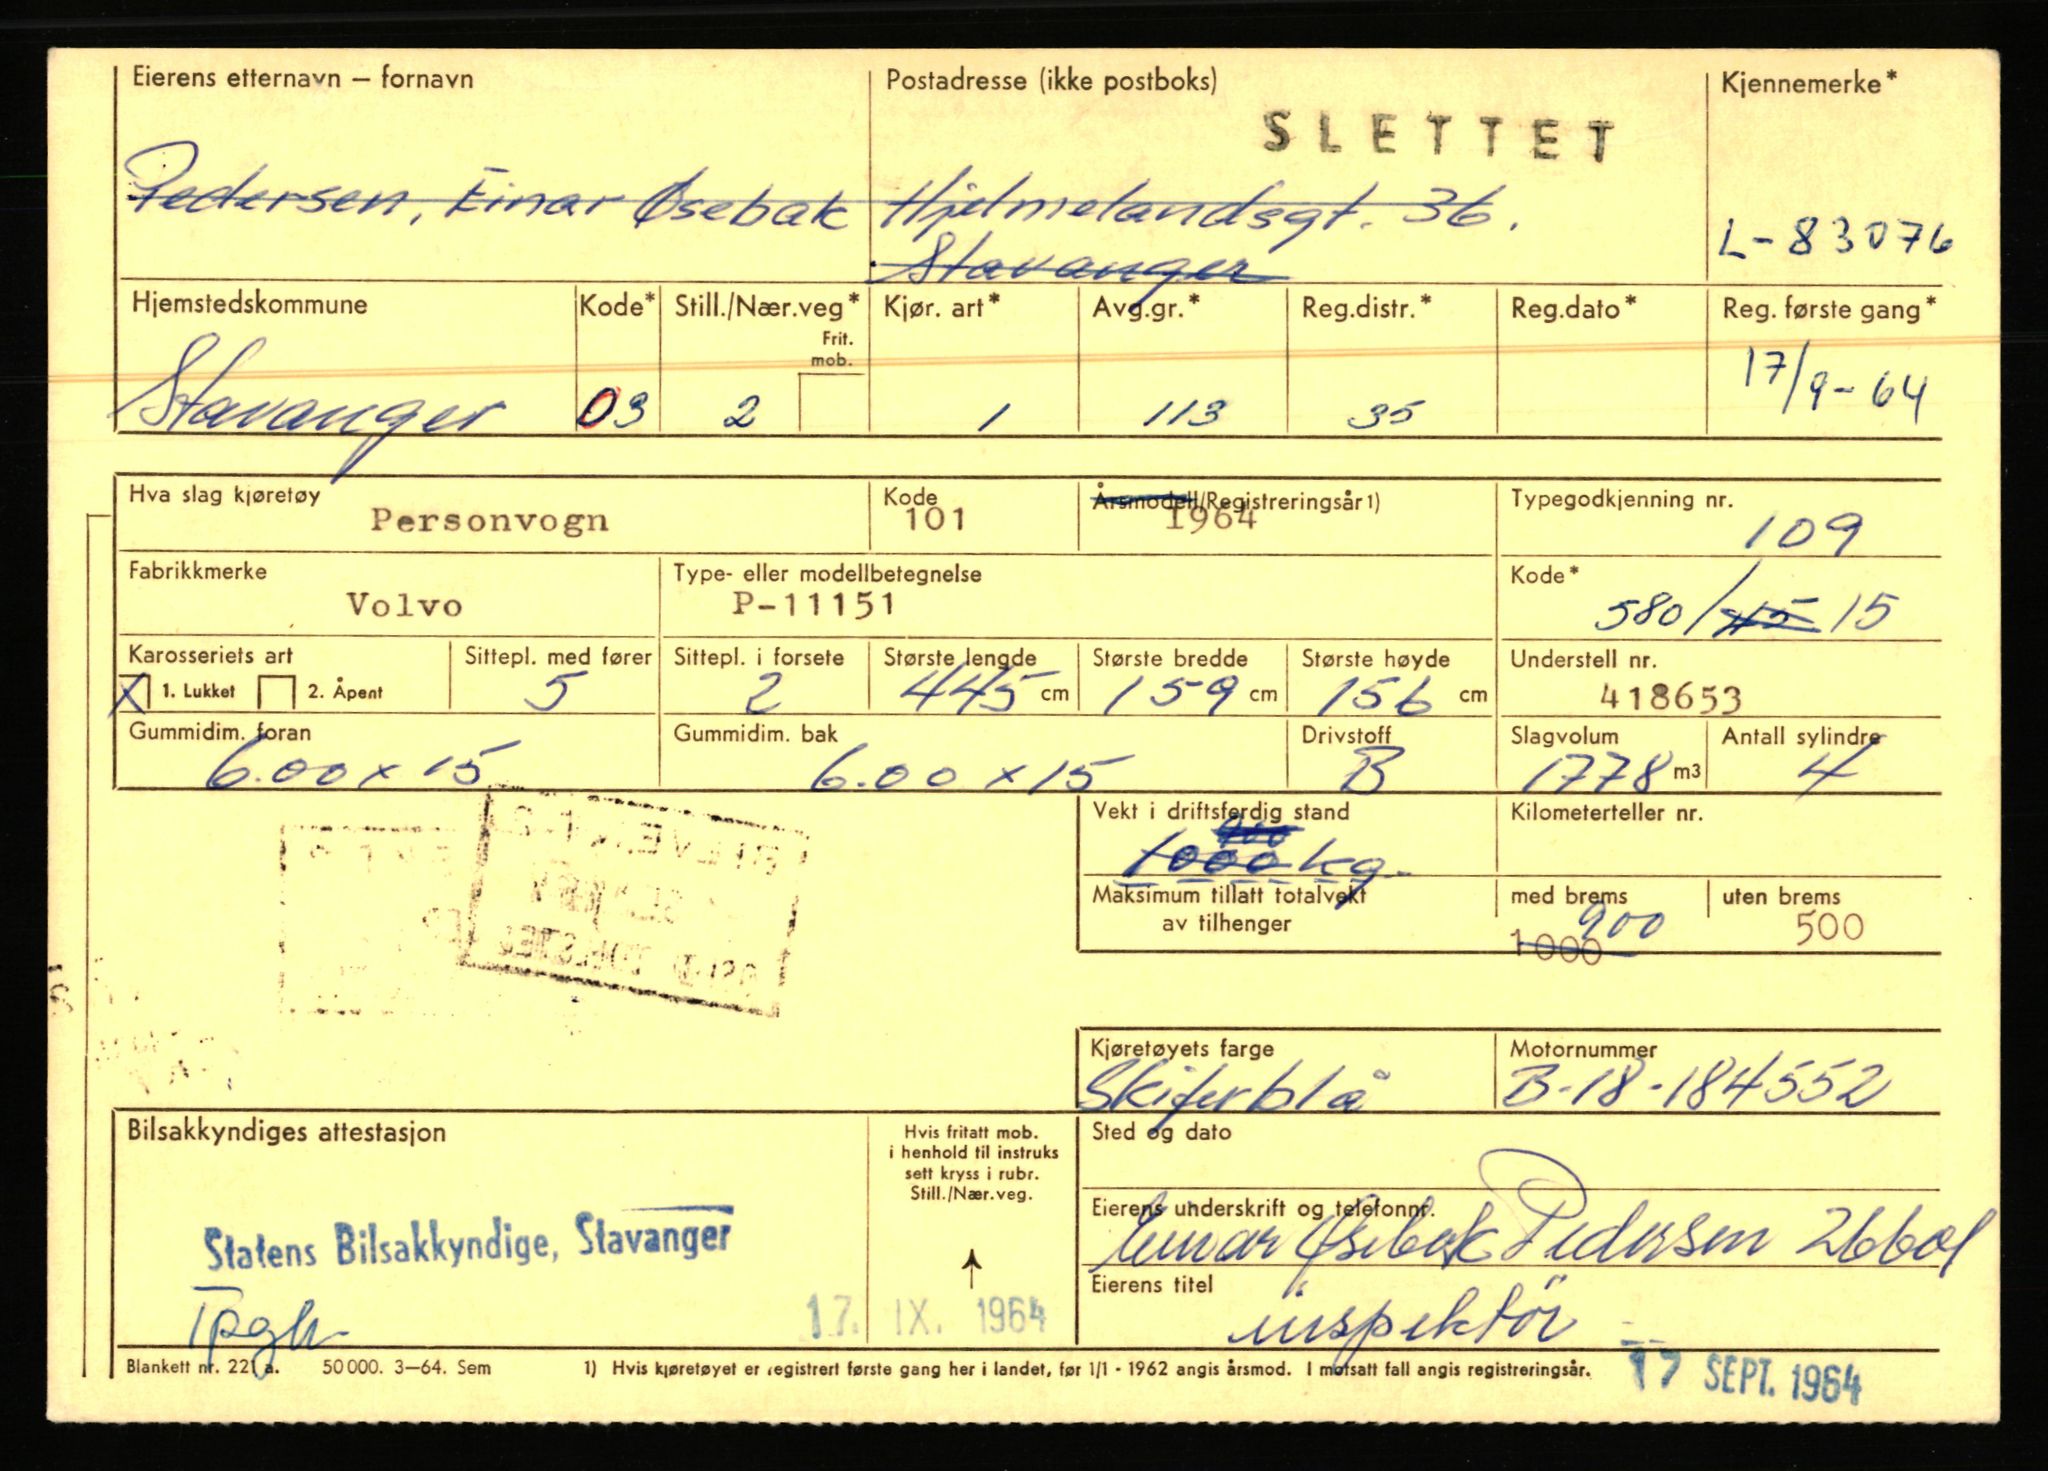 Eierens etternavn – fornavn
Postadresse (ikke postboks)
Kjennemerke*
SLETTET
Pedersen, Einar Øsebak
Hjelmelandsgt. 36.
Stavanger
L-83076
Hjemstedskommune
Kode*
Still./Nær.veg*
Frit. mob.
Kjør. art*
Avg.gr.*
Reg.distr.*
Reg.dato*
Reg. første gang*
Stavanger
03
2
1
113
35
17/9-64
Hva slag kjøretøy
Personvogn
Kode
101
Årsmodell/Registreringsår 1)
1964
Typegodkjenning nr.
109
Fabrikkmerke
Volvo
Type- eller modellbetegnelse
P-11151
Kode*
580/115 15
Karosseriets art
X 1. Lukket 2. Åpent
Sittepl. med fører
5
Sittepl. i forsete
2
Største lengde
445 cm
Største bredde
159 cm
Største høyde
156 cm
Understell nr.
418653
Gummidim. foran
6.00 x 15
Gummidim. bak
6.00 x 15
Drivstoff
B
Slagvolum
1778 m3
Antall sylindre
4
Vekt i driftsferdig stand
900
1000 kg.
Kilometerteller nr.
Maksimum tillatt totalvekt
av tilhenger
med brems
900
1000
uten brems
500
Kjøretøyets farge
Skiferblå
Motornummer
B-18-184552
Bilsakkyndiges attestasjon
Hvis fritatt mob.
i henhold til instruks
sett kryss i rubr.
Still./Nær.veg.
Sted og dato
Statens Bilsakkyndige, Stavanger
17. IX. 1964
Eierens underskrift og telefonnr.
Einar Øsebak Pedersen 26601
Eierens titel
inspektör
17 SEPT. 1964
Blankett nr. 221 a. 50 000. 3–64. Sem
1) Hvis kjøretøyet er registrert første gang her i landet, før 1/1 - 1962 angis årsmod. I motsatt fall angis registreringsår.